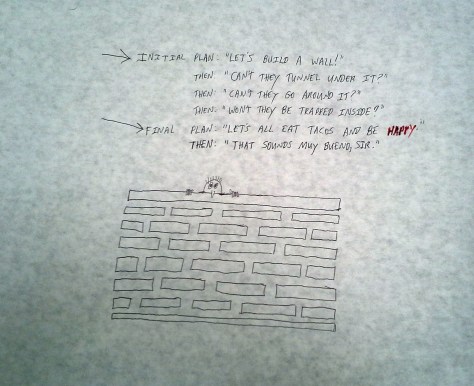 INITIAL PLAN: "LET'S BUILD A WALL!"
THEN: "CAN'T THEY TUNNEL UNDER IT?"
THEN: "CAN'T THEY GO AROUND IT?"
THEN: "WON'T THEY BE TRAPPED INSIDE?"
FINAL PLAN: "LETS ALL EAT TACOS AND BE HAPPY."
THEN: "THAT SOUNDS MUY BUENO, SIR."